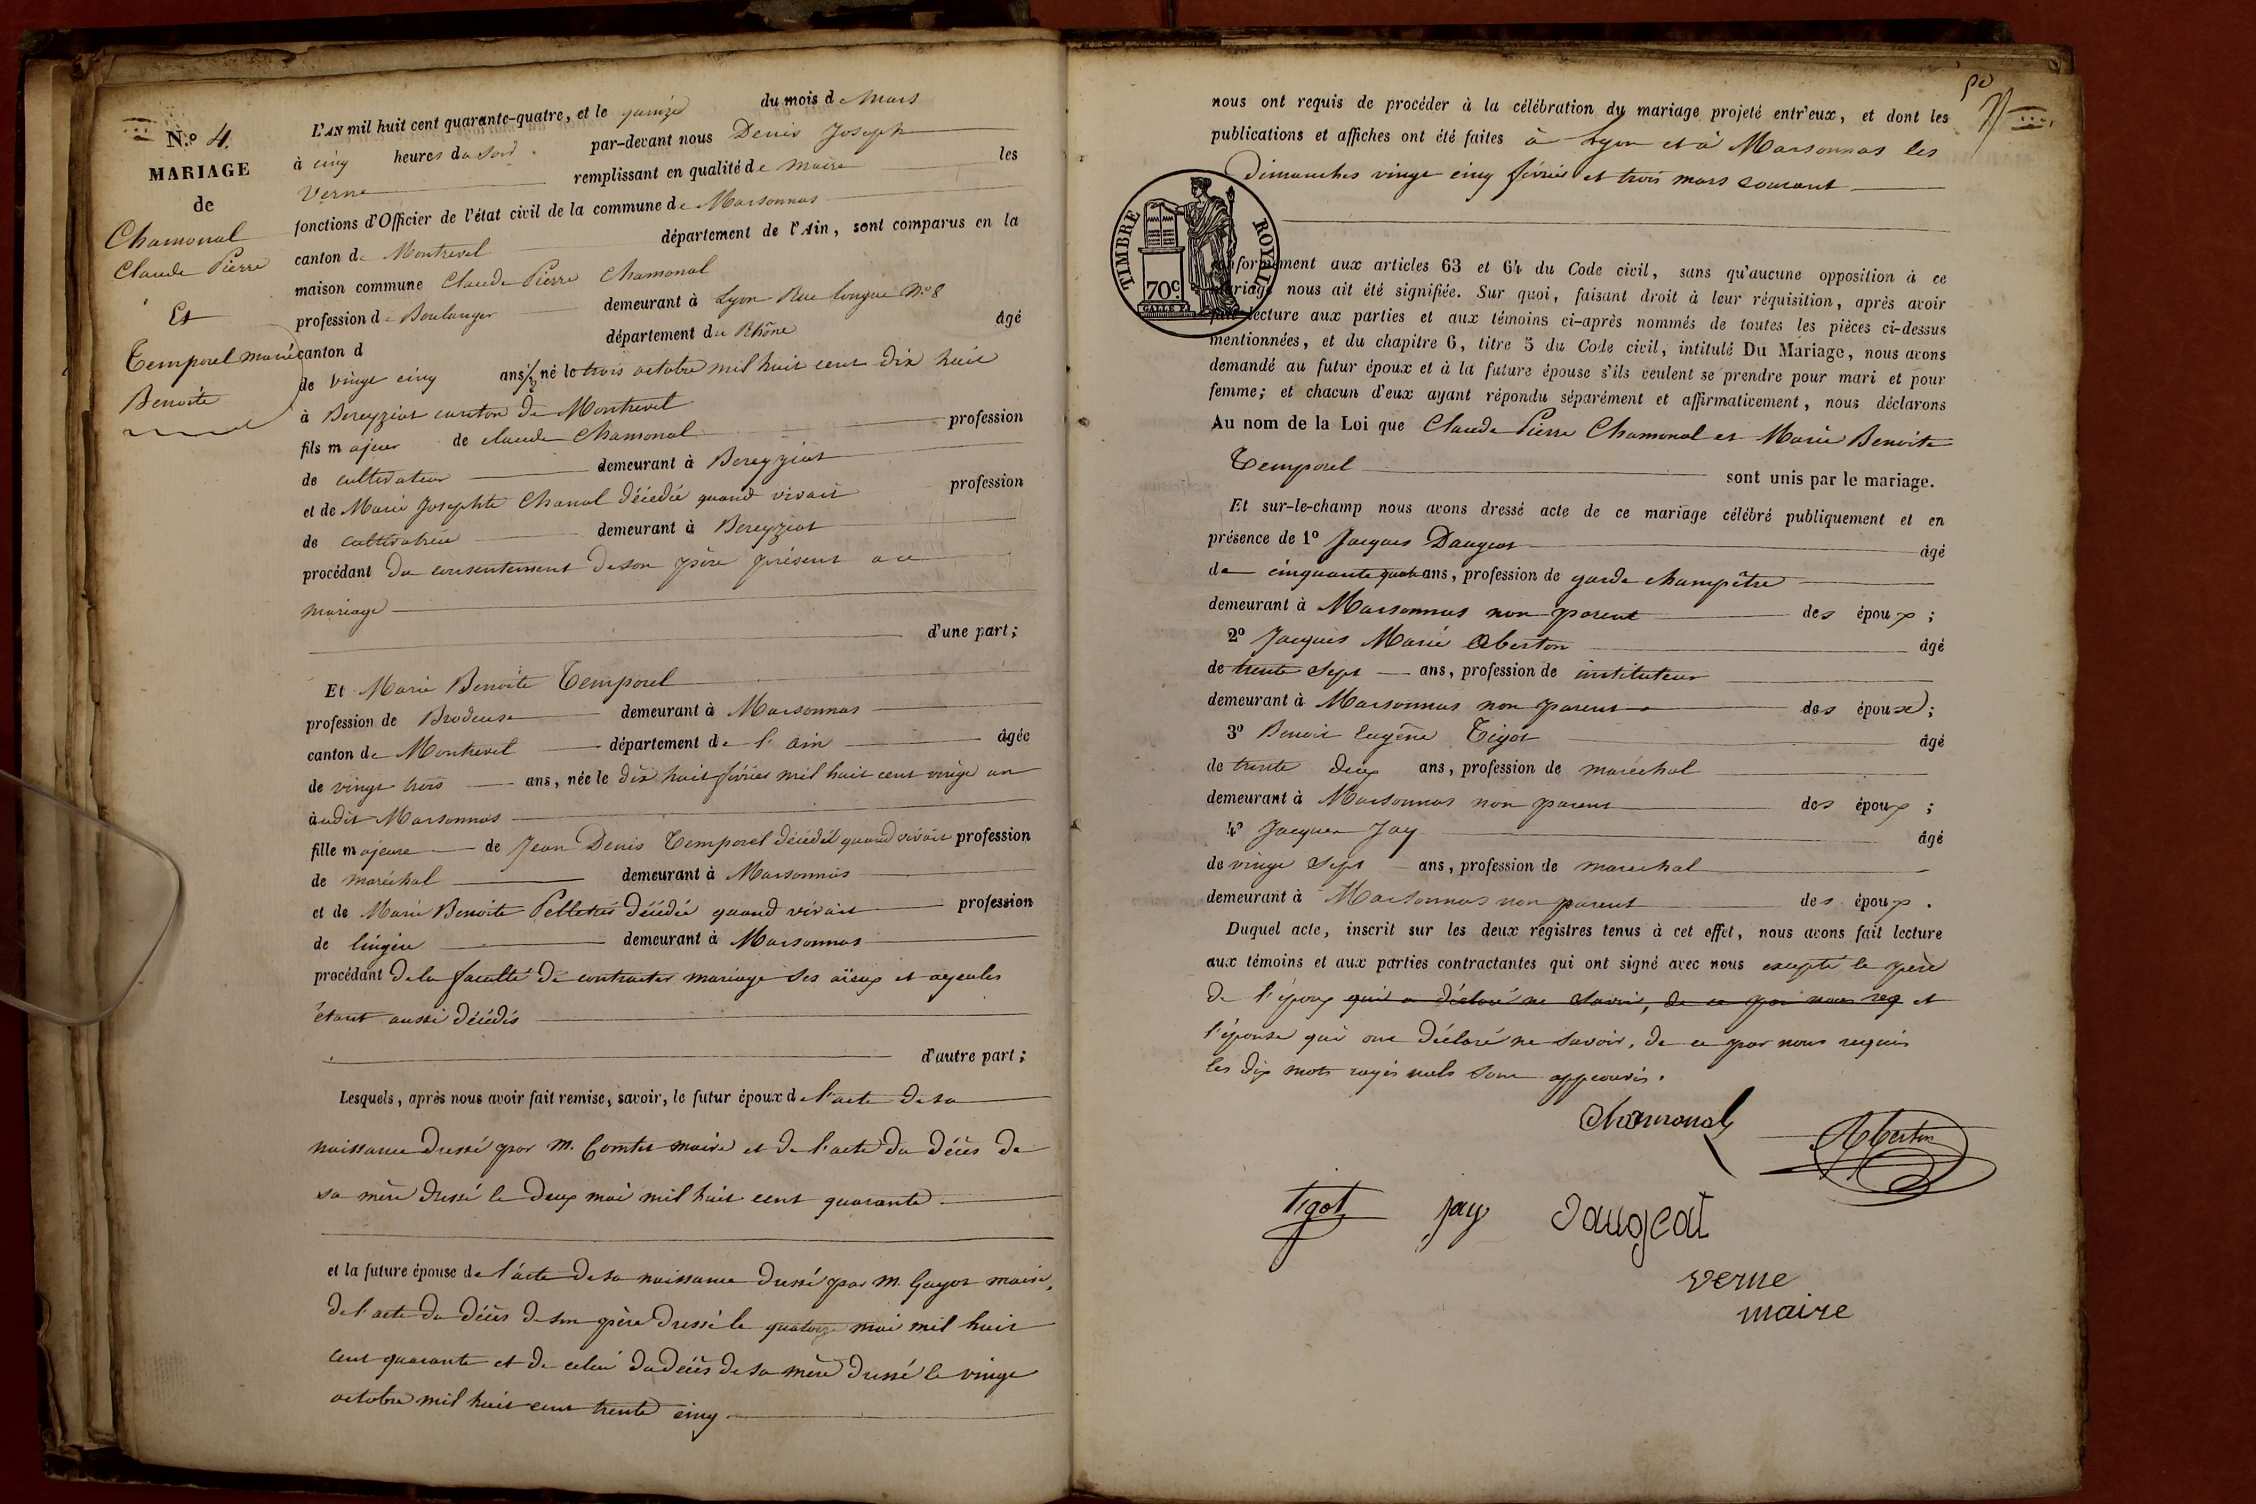 N.º 4.
MARIAGE
de
Chamonal
Claude Pierre
Et
Temporel marie
Benoite
L'AN mil huit cent quarante-quatre, et le quinze du mois de Mars
à cinq heures du soir par-devant nous Denis Joseph
Verne remplissant en qualité de maire les
fonctions d'Officier de l'état civil de la commune de Marsonnas
canton de Montrevel département de l'Ain, sont comparus en la
maison commune Claude Pierre Chamonal
profession de Boulanger demeurant à Lyon Rue longue Nº 8
canton d département du Rhône âgé
de vingt cinq ans ½ né le trois octobre mil huit cent dix huit
à Bereyziat canton de Montrevel
fils majeur de claude Chamonal profession
de cultivateur demeurant à Bereyziat
et de Marie Josephte Chanal décédée quand vivait profession
de cultivatrice demeurant à Bereyziat
procédant du consentement de son père présent a ce
mariage
d'une part;
Et Marie Benoite Temporel
profession de Brodeuse demeurant à Marsonnas
canton de Montrevel département de l'ain âgée
de vingt trois ans, née le dix huit février mil huit cent vingt un
audit Marsonnas
fille majeure de Jean Denis Temporel décédé quand vivait profession
de maréchal demeurant à Marsonnas
et de Marie Benoite décédée quand vivait profession
de lingère demeurant à Marsonnas
procédant de la faculté de contracter mariage ses aïeux et ayeules
étant aussi décédés
d'autre part;
Lesquels, après nous avoir fait remise, savoir, le futur époux de l'acte de sa
naissance dressé par M. Comte maire et de l'acte du décès de
sa mère dressé le deux mai mil huit cent quarante
et la future épouse de l'acte de sa naissance dressé par M. Guyot maire,
de l'acte du décès de son père dressé le quatorze mai mil huit
cent quarante et de celui du décès de sa mère dressé le vingt
octobre mil huit cent trente cinq
nous ont requis de procéder à la célébration du mariage projeté entr'eux, et dont les
publications et affiches ont été faites à Lyon et à Marsonnas les
Dimanches vingt cinq février et trois mars courant
TIMBRE ROYAL
70c
conformément aux articles 63 et 64 du Code civil, sans qu'aucune opposition à ce
mariage nous ait été signifiée. Sur quoi, faisant droit à leur réquisition, après avoir
fait lecture aux parties et aux témoins ci-après nommés de toutes les pièces ci-dessus
mentionnées, et du chapitre 6, titre 5 du Code civil, intitulé Du Mariage, nous avons
demandé au futur époux et à la future épouse s'ils veulent se prendre pour mari et pour
femme; et chacun d'eux ayant répondu séparément et affirmativement, nous déclarons
Au nom de la Loi que Claude Pierre Chamonal et Marie Benoite
Temporel sont unis par le mariage.
Et sur-le-champ nous avons dressé acte de ce mariage célébré publiquement et en
présence de 1º Jacques Daugeat âgé
de cinquante quatre ans, profession de garde champêtre
demeurant à Marsonnas non parent des époux;
2º Jacques Marie Aberton âgé
de trente sept ans, profession de instituteur
demeurant à Marsonnas non parent des époux;
3º Benoit Eugène Tigot âgé
de trente deux ans, profession de maréchal
demeurant à Marsonnas non parent des époux;
4º Jacques Jay âgé
de vingt sept ans, profession de marechal
demeurant à Marsonnas non parent des époux.
Duquel acte, inscrit sur les deux registres tenus à cet effet, nous avons fait lecture
aux témoins et aux parties contractantes qui ont signé avec nous excepté le père
de l'époux qui a déclaré ne savoir, de ce par nous req et
l'épouse qui ont déclaré ne savoir, de ce par nous requis
les dix mots rayés nuls sont approuvés.
Chamonal
Aberton
Tigot
jay
Daugeat
verne
maire